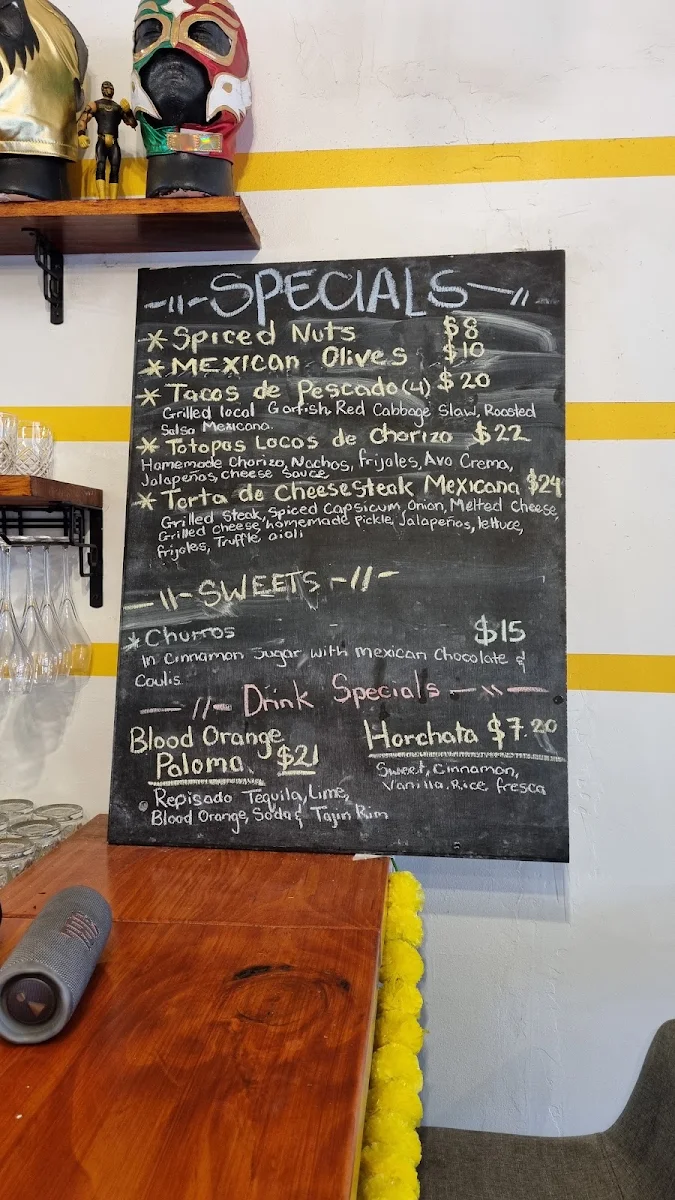 -11-SPECIALS-11
* Spiced Nuts $8
* MEXICAN Olives $10
* Tacos de Pescado (4) $20
Grilled local Garfish, Red Cabbage Slaw, Roasted
Salsa Mexicana.
* Totopos Locos de Chorizo $22
Homemade Chorizo, Nachos, frijoles, Avo Crema,
Jalapeños, cheese sauce,
* Torta de CheeseSteak Mexicana $24
Grilled Steak, Spiced Capsicum, Onion, Melted Cheese,
Grilled cheese, homemade pickle, Jalapeños, lettuce,
frijoles, Truffle aioli
-11-SWEETS-11-
* Churros $15
In Cinnamon Sugar with mexican Chocolate &
Coulis.
-11-Drink Specials-11-
Blood Orange
Paloma $21
Repisado Tequila, Lime,
Blood Orange, Soda & Tajin Rim
Horchata $7.20
Sweet, Cinnamon,
Vanilla, Rice fresca